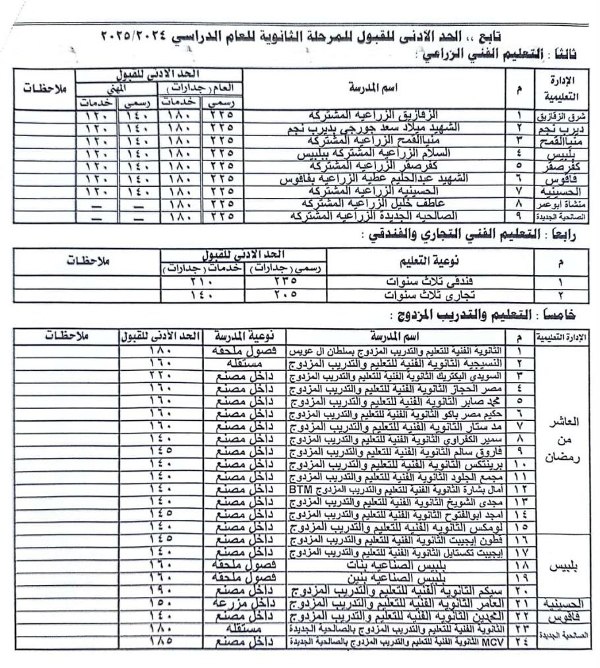 تابع ،، الحد الادنى للقبول للمرحلة الثانوية للعام الدراسي ٢٠٢٥/٢٠٢٤
ثالثا : التعليم الفني الزراعي :
الإدارة التعليمية م اسم المدرسة الحد الادنى للقبول ملاحظات
العام (جدارات) المهني
رسمى خدمات رسمى خدمات
شرق الزقازيق ١ الزقازيق الزراعيه المشتركه ٢٢٥ ١٨٠ ١٤٠ ١٢٠
ديرب نجم ٢ الشهيد ميلاد سعد جورجى بديرب نجم ٢٢٥ ١٨٠ ١٤٠ ١٢٠
منياالقمح ٣ منياالقمح الزراعيه المشتركه ٢٢٥ ١٨٠ ١٤٠ ١٢٠
بلبيس ٤ السلام الزراعيه المشتركه ببلبيس ٢٢٥ ١٨٠ ١٤٠ ١٢٠
كفرصقر ٥ كفرصقر الزراعيه المشتركه ٢٢٥ ١٨٠ ١٤٠ ١٢٠
فاقوس ٦ الشهيد عبدالحليم عطية الزراعيه بفاقوس ٢٢٥ ١٨٠ ١٤٠ ١٢٠
الحسينية ٧ الحسينيه الزراعيه المشتركه ٢٢٥ ١٨٠ ١٤٠ ١٢٠
منشاة ابوعمر ٨ عاطف خليل الزراعيه المشتركه ٢٢٥ ١٨٠ — —
الصالحية الجديدة ٩ الصالحية الجديدة الزراعيه المشتركه ٢٢٥ ١٨٠ — —
رابعا : التعليم الفني التجاري والفندقي :
م نوعية التعليم الحد الادنى للقبول ملاحظات
رسمي (جدارات) خدمات (جدارات)
١ فندقى ثلاث سنوات ٢٣٥ ٢١٠
٢ تجارى ثلاث سنوات ٢٠٥ ١٤٠
خامسا : التعليم والتدريب المزدوج :
الإدارة التعليمية م اسم المدرسة نوعية المدرسة الحد الادنى للقبول ملاحظات
العاشر من رمضان
١ الثانوية الفنية للتعليم والتدريب المزدوج بسلطان ال عويس فصول ملحقه ١٨٠
٢ النسيجية الثانوية الفنية للتعليم والتدريب المزدوج مستقله ١٦٠
٣ السويدى اليكتريك الثانوية الفنية للتعليم والتدريب المزدوج داخل مصنع ٢٢٠
٤ مصر الحجاز الثانوية الفنية للتعليم والتدريب المزدوج داخل مصنع ١٦٠
٥ محمد صابر الثانوية الفنية للتعليم والتدريب المزدوج داخل مصنع ١٦٠
٦ حكيم مصر باكو الثانوية الفنية للتعليم والتدريب المزدوج داخل مصنع ١٦٠
٧ مد ستار الثانوية الفنية للتعليم والتدريب المزدوج داخل مصنع ١٦٠
٨ سمير الكفراوى الثانوية الفنية للتعليم والتدريب المزدوج داخل مصنع ١٤٠
٩ فاروق سالم الثانوية الفنية للتعليم والتدريب المزدوج داخل مصنع ١٤٥
١٠ برينتكس الثانوية الفنية للتعليم والتدريب المزدوج داخل مصنع ١٤٠
١١ مجمع الجلود الثانوية الفنية للتعليم والتدريب المزدوج داخل مصنع ١٤٠
١٢ امال بشارة الثانوية الفنية للتعليم والتدريب المزدوج BTM داخل مصنع ١٤٠
١٣ مجدى الشويخ الثانوية الفنية للتعليم والتدريب المزدوج داخل مصنع ١٤٠
١٤ امجد ابوالفتوح الثانوية الفنية للتعليم والتدريب المزدوج داخل مصنع ١٤٥
١٥ لومكس الثانوية الفنية للتعليم والتدريب المزدوج داخل مصنع ١٤٠
بلبيس
١٦ قطون إيجيبت الثانوية الفنية للتعليم والتدريب المزدوج داخل مصنع ١٤٥
١٧ إيجيبت تكستايل الثانوية الفنية للتعليم والتدريب المزدوج داخل مصنع ١٤٠
١٨ بلبيس الصناعيه بنات فصول ملحقه ١٦٠
١٩ بلبيس الصناعيه بنين فصول ملحقه ١٦٠
٢٠ سيكم الثانوية الفنية للتعليم والتدريب المزدوج داخل مصنع ١٩٠
الحسينية ٢١ العامر الثانوية الفنية للتعليم والتدريب المزدوج داخل مزرعه ١٥٠
فاقوس ٢٢ المحمدين الثانوية الفنية للتعليم والتدريب المزدوج داخل مصنع ١٤٠
الصالحية الجديدة
٢٣ الثانوية الفنية للتعليم والتدريب المزدوج بالصالحية الجديدة مستقله ١٨٠
٢٤ MCV الثانوية الفنية للتعليم والتدريب المزدوج بالصالحية الجديدة داخل مصنع ١٨٥